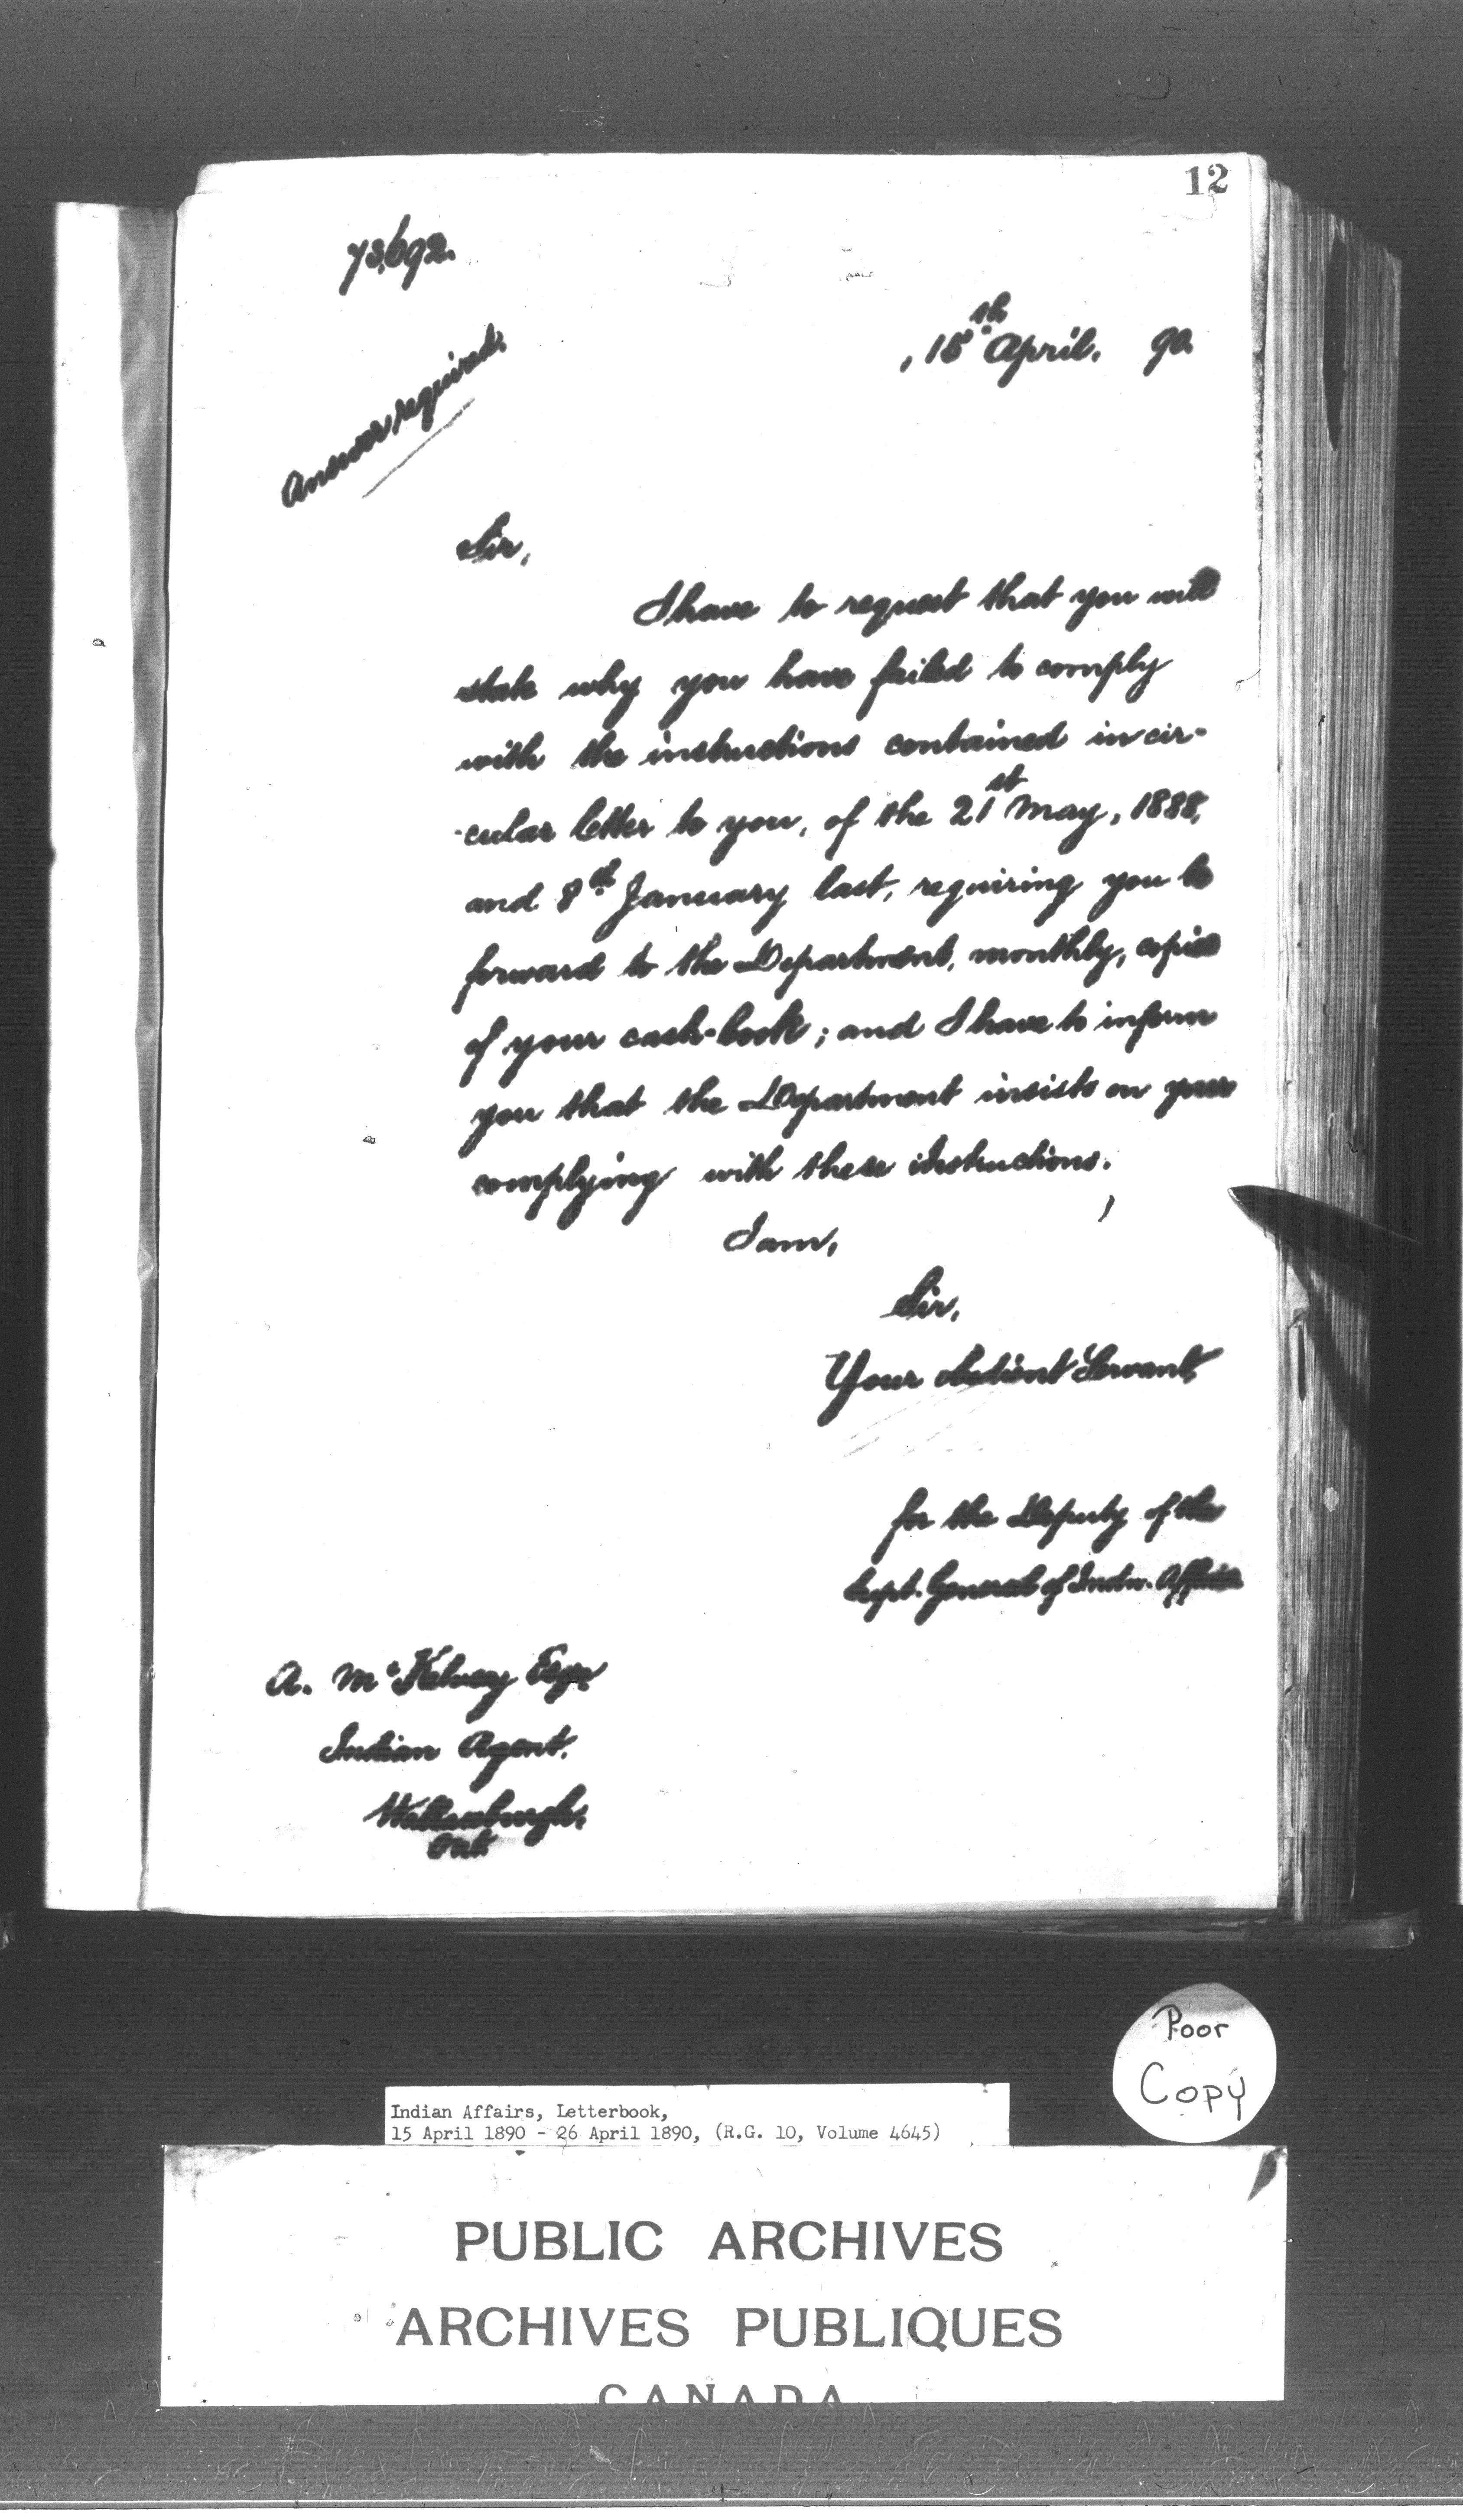 12
73,692.
, 15th April. 90.
Answer required.
Sir,
I have to request that you will
state why you have failed to comply
with the instructions contained in cir-
-cular letter to you, of the 21st May, 1888,
and 8th January last, requiring you to
forward to the Department, monthly, copies
of your cash-book; and I have to inform
you that the Department insists on your
complying with these instructions.
I am,
Sir,
Your obedient Servant,
for the Deputy of the
Supt. General of Indn. Affairs
A. McKelvey Esqr.
Indian Agent.
Wallaceburgh,
Ont
Poor
Copy
Indian Affairs, Letterbook,
15 April 1890 - 26 April 1890, (R.G. 10, Volume 4645)
PUBLIC ARCHIVES
ARCHIVES PUBLIQUES
CANADA